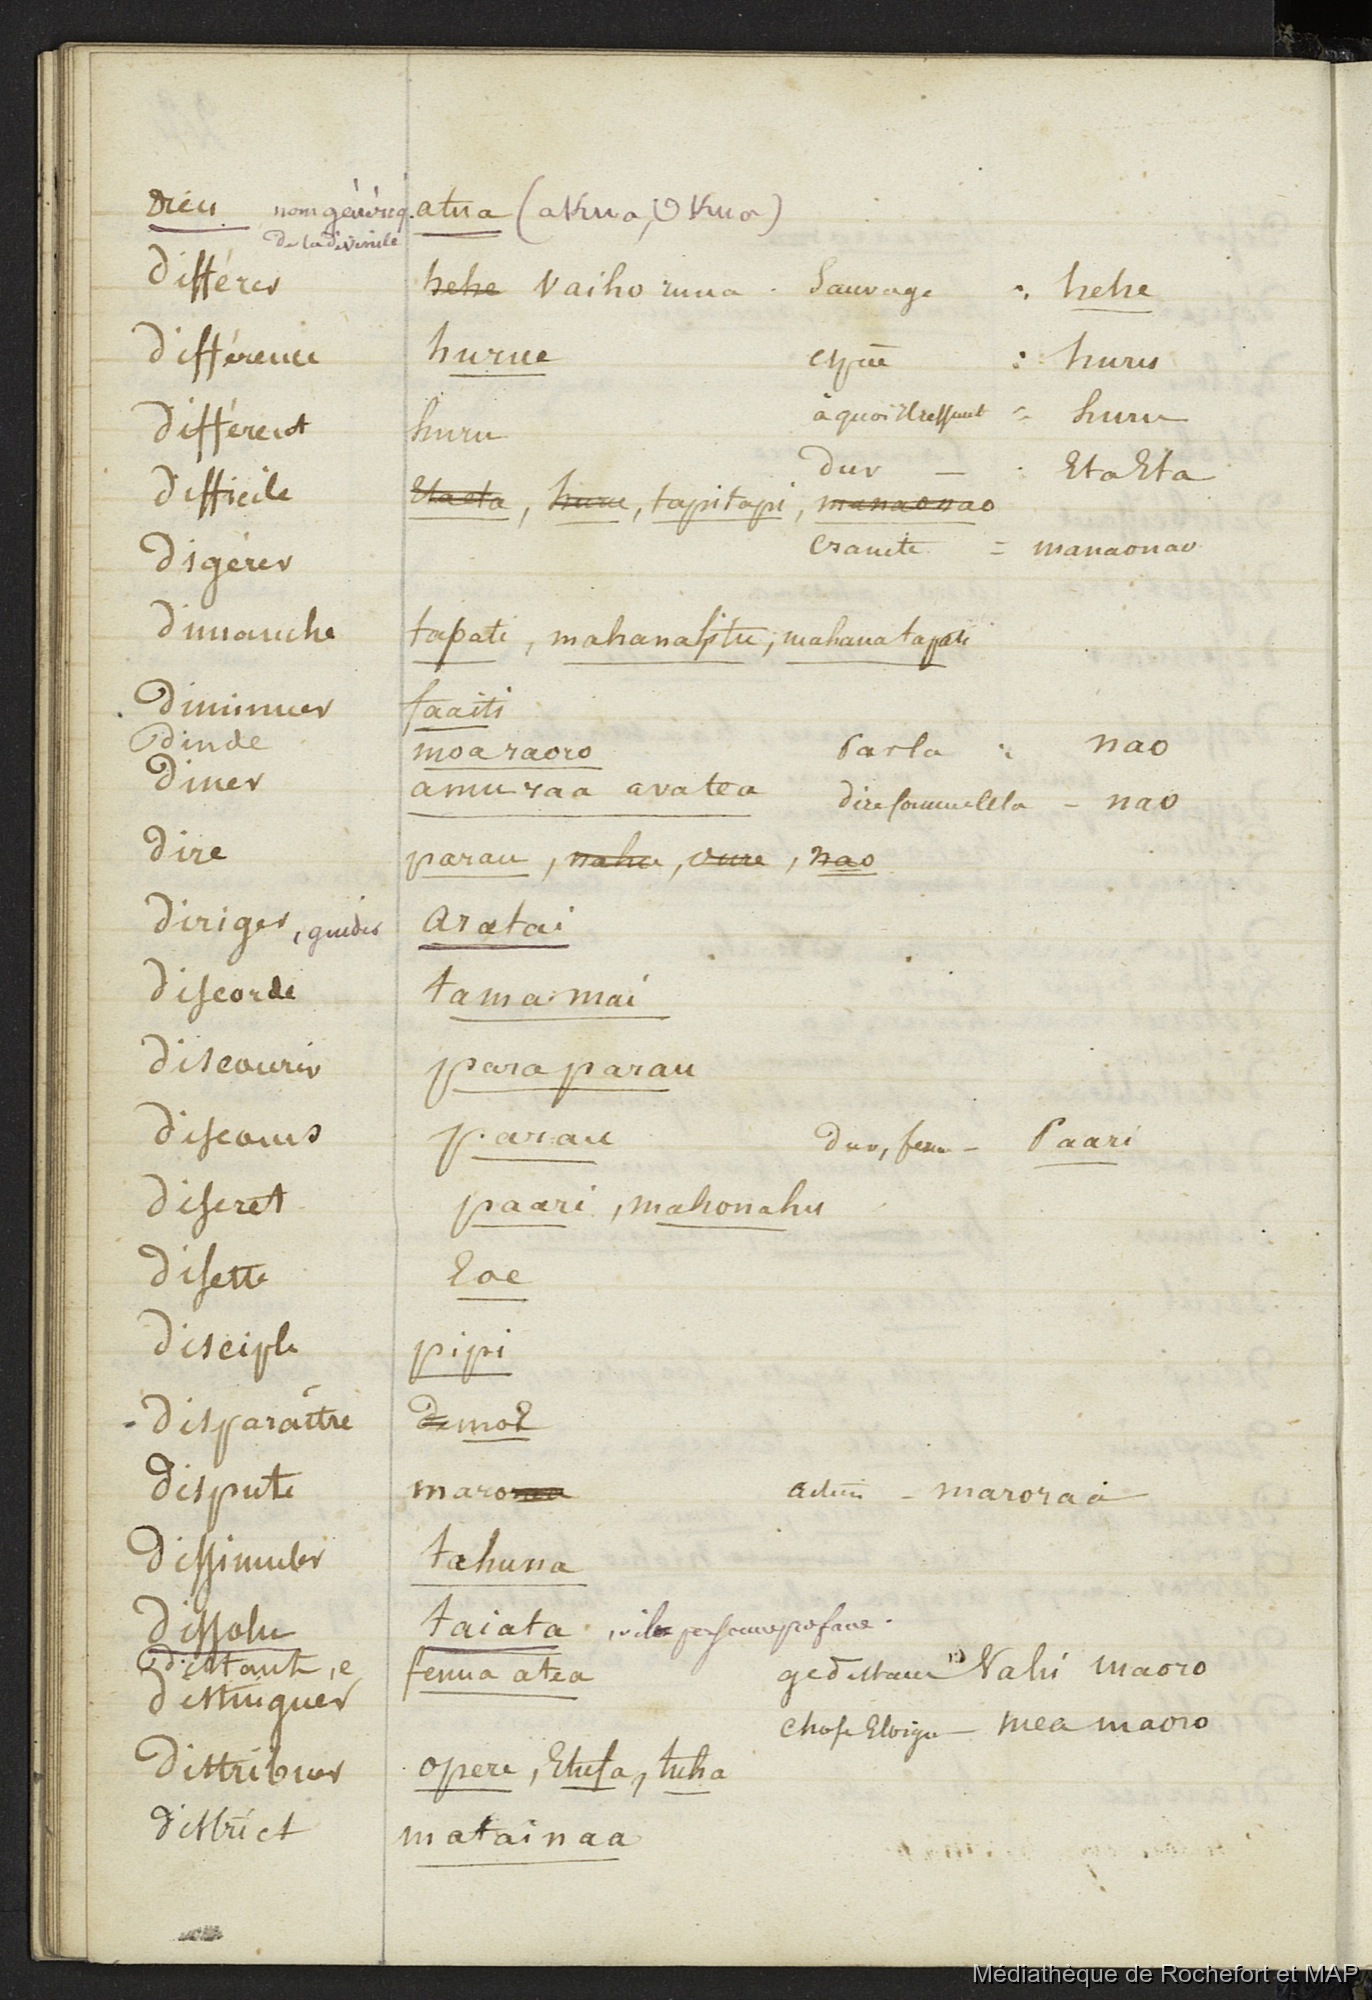 Dieu nom génériq. atua (akua, Okua)
de la divinité
différer hehe vaihoruua . Sauvage = hehe
différence hurue espèce : huru
différent huru à quoi il ressemble = huru
difficile Etaeta, huru, tapitapi, manaonao dur — : EtaEta
digérer crainte = manaonao
dimanche tapati, mahanaPtu, mahana tapati
diminuer faaiti
Dinde moa raoro Parla = nao
diner amuraa avatea dire comme cela - nao
dire parau, nahe, oure, nao
diriger, guider aratai
discorde tamamai
discourir paraparau
discours parau dur, ferme - Paari
discret paari, mahonahu
disette Eoe
disciple pipi
disparaître de moE
dispute maroraa action - maroraa
dissimuler tahuna
dissolu taiata, vile personne profane.
Distant, e fenua atea Nahi maoro
distinguer chose Eloignée - mea maoro
distribuer opere, Etufa, tuha
district matainaa
Médiathèque de Rochefort et MAP